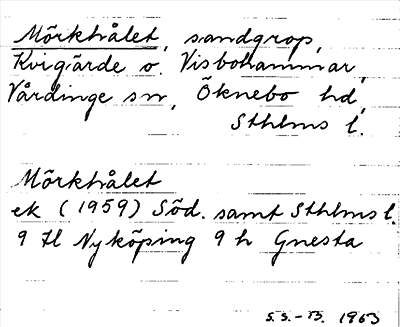 Mörkhålet, sandgrop,
Kvigärde o. Visbohammar,
Vårdinge sn, Öknebo hd,
Sthlms l.
Mörkhålet
ek (1959) Söd. samt Sthlms l.
9 H Nyköping 9 h Gnesta
S.S.-B. 1963